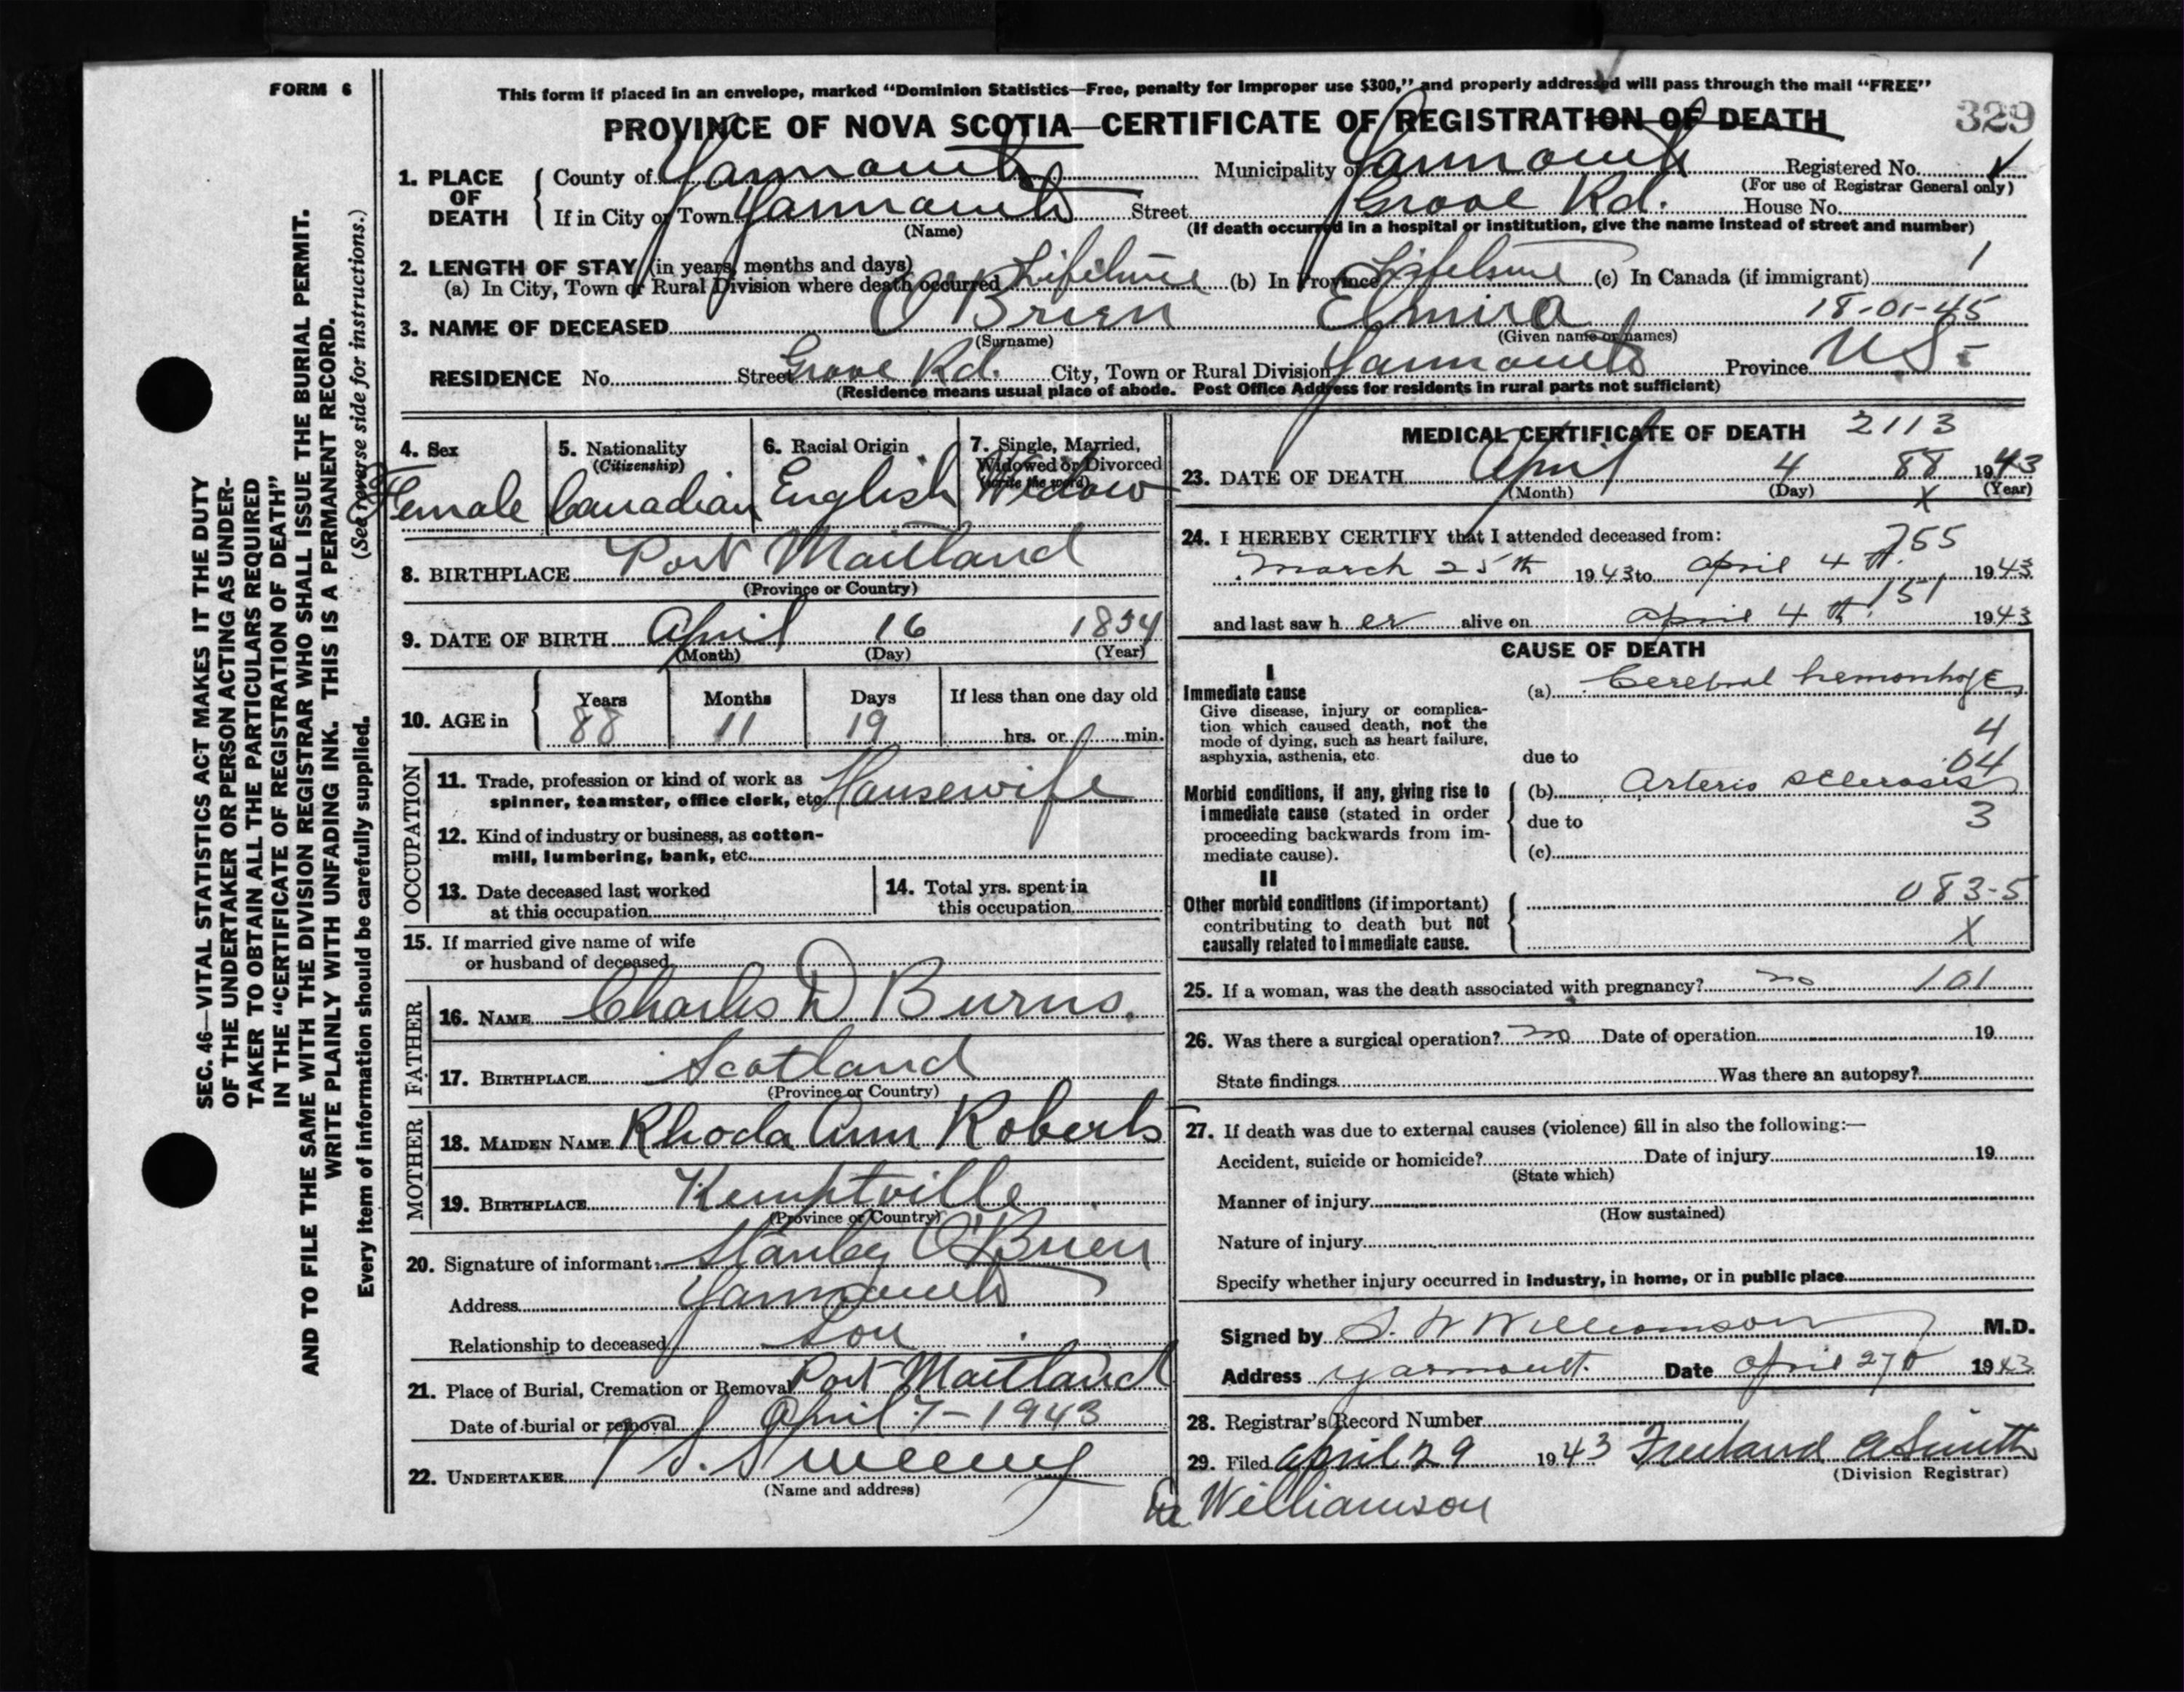 FORM 6
This form if placed in an envelope, marked “Dominion Statistics—Free, penalty for improper use $300,” and properly addressed will pass through the mail “FREE”
PROVINCE OF NOVA SCOTIA—CERTIFICATE OF REGISTRATION OF DEATH
329
1. PLACE OF DEATH
County of Yarmouth Municipality of Yarmouth Registered No. ✓
(For use of Registrar General only)
If in City or Town Yarmouth Street Grove Rd. House No.
(Name) (If death occurred in a hospital or institution, give the name instead of street and number)
2. LENGTH OF STAY (in years, months and days)
(a) In City, Town or Rural Division where death occurred Lifetime (b) In Province Lifetime (c) In Canada (if immigrant) 1
3. NAME OF DECEASED O'Brien Elmira 18-01-45
(Surname) (Given name or names)
RESIDENCE No. Street Grove Rd. City, Town or Rural Division Yarmouth Province N.S.
(Residence means usual place of abode. Post Office Address for residents in rural parts not sufficient)
4. Sex
Female
5. Nationality
(Citizenship)
Canadian
6. Racial Origin
English
7. Single, Married,
Widowed or Divorced
(write the word)
Widow
8. BIRTHPLACE Port Maitland
(Province or Country)
9. DATE OF BIRTH April 16 1854
(Month) (Day) (Year)
10. AGE in Years Months Days If less than one day old
88 11 19 hrs. or min.
OCCUPATION
11. Trade, profession or kind of work as
spinner, teamster, office clerk, etc. Housewife
12. Kind of industry or business, as cotton-
mill, lumbering, bank, etc.
13. Date deceased last worked
at this occupation
14. Total yrs. spent in
this occupation
15. If married give name of wife
or husband of deceased
FATHER
16. NAME Charles D Burns.
17. BIRTHPLACE Scotland
(Province or Country)
MOTHER
18. MAIDEN NAME Rhoda Ann Roberts
19. BIRTHPLACE Kemptville
(Province or Country)
20. Signature of informant Stanley O'Brien
Address Yarmouth
Relationship to deceased Son
21. Place of Burial, Cremation or Removal Port Maitland
Date of burial or removal April 7-1943
22. UNDERTAKER S. Sweeny
(Name and address)
MEDICAL CERTIFICATE OF DEATH 2113
23. DATE OF DEATH April 4 88 1943
(Month) (Day) X (Year)
24. I HEREBY CERTIFY that I attended deceased from:
755
March 25th 1943 to April 4th. 1943
151
and last saw her alive on April 4th. 1943
CAUSE OF DEATH
I
Immediate cause
Give disease, injury or complica-
tion which caused death, not the
mode of dying, such as heart failure,
asphyxia, asthenia, etc.
(a) Cerebral hemorrhage
4
due to 04
Morbid conditions, if any, giving rise to
immediate cause (stated in order
proceeding backwards from im-
mediate cause).
(b) Arterio sclerosis
due to 3
(c)
II
Other morbid conditions (if important)
contributing to death but not
causally related to immediate cause.
083-5
X
25. If a woman, was the death associated with pregnancy? no 101
26. Was there a surgical operation? no Date of operation 19
State findings Was there an autopsy?
27. If death was due to external causes (violence) fill in also the following:—
Accident, suicide or homicide? Date of injury 19
(State which)
Manner of injury
(How sustained)
Nature of injury
Specify whether injury occurred in industry, in home, or in public place
Signed by S. W Williamson M.D.
Address Yarmouth. Date April 27th 1943
28. Registrar's Record Number
29. Filed April 29 1943 Freeland A Smith
(Division Registrar)
Williamson
SEC. 46—VITAL STATISTICS ACT MAKES IT THE DUTY
OF THE UNDERTAKER OR PERSON ACTING AS UNDER-
TAKER TO OBTAIN ALL THE PARTICULARS REQUIRED
IN THE “CERTIFICATE OF REGISTRATION OF DEATH”
AND TO FILE THE SAME WITH THE DIVISION REGISTRAR WHO SHALL ISSUE THE BURIAL PERMIT.
WRITE PLAINLY WITH UNFADING INK. THIS IS A PERMANENT RECORD.
Every item of information should be carefully supplied. (See reverse side for instructions.)